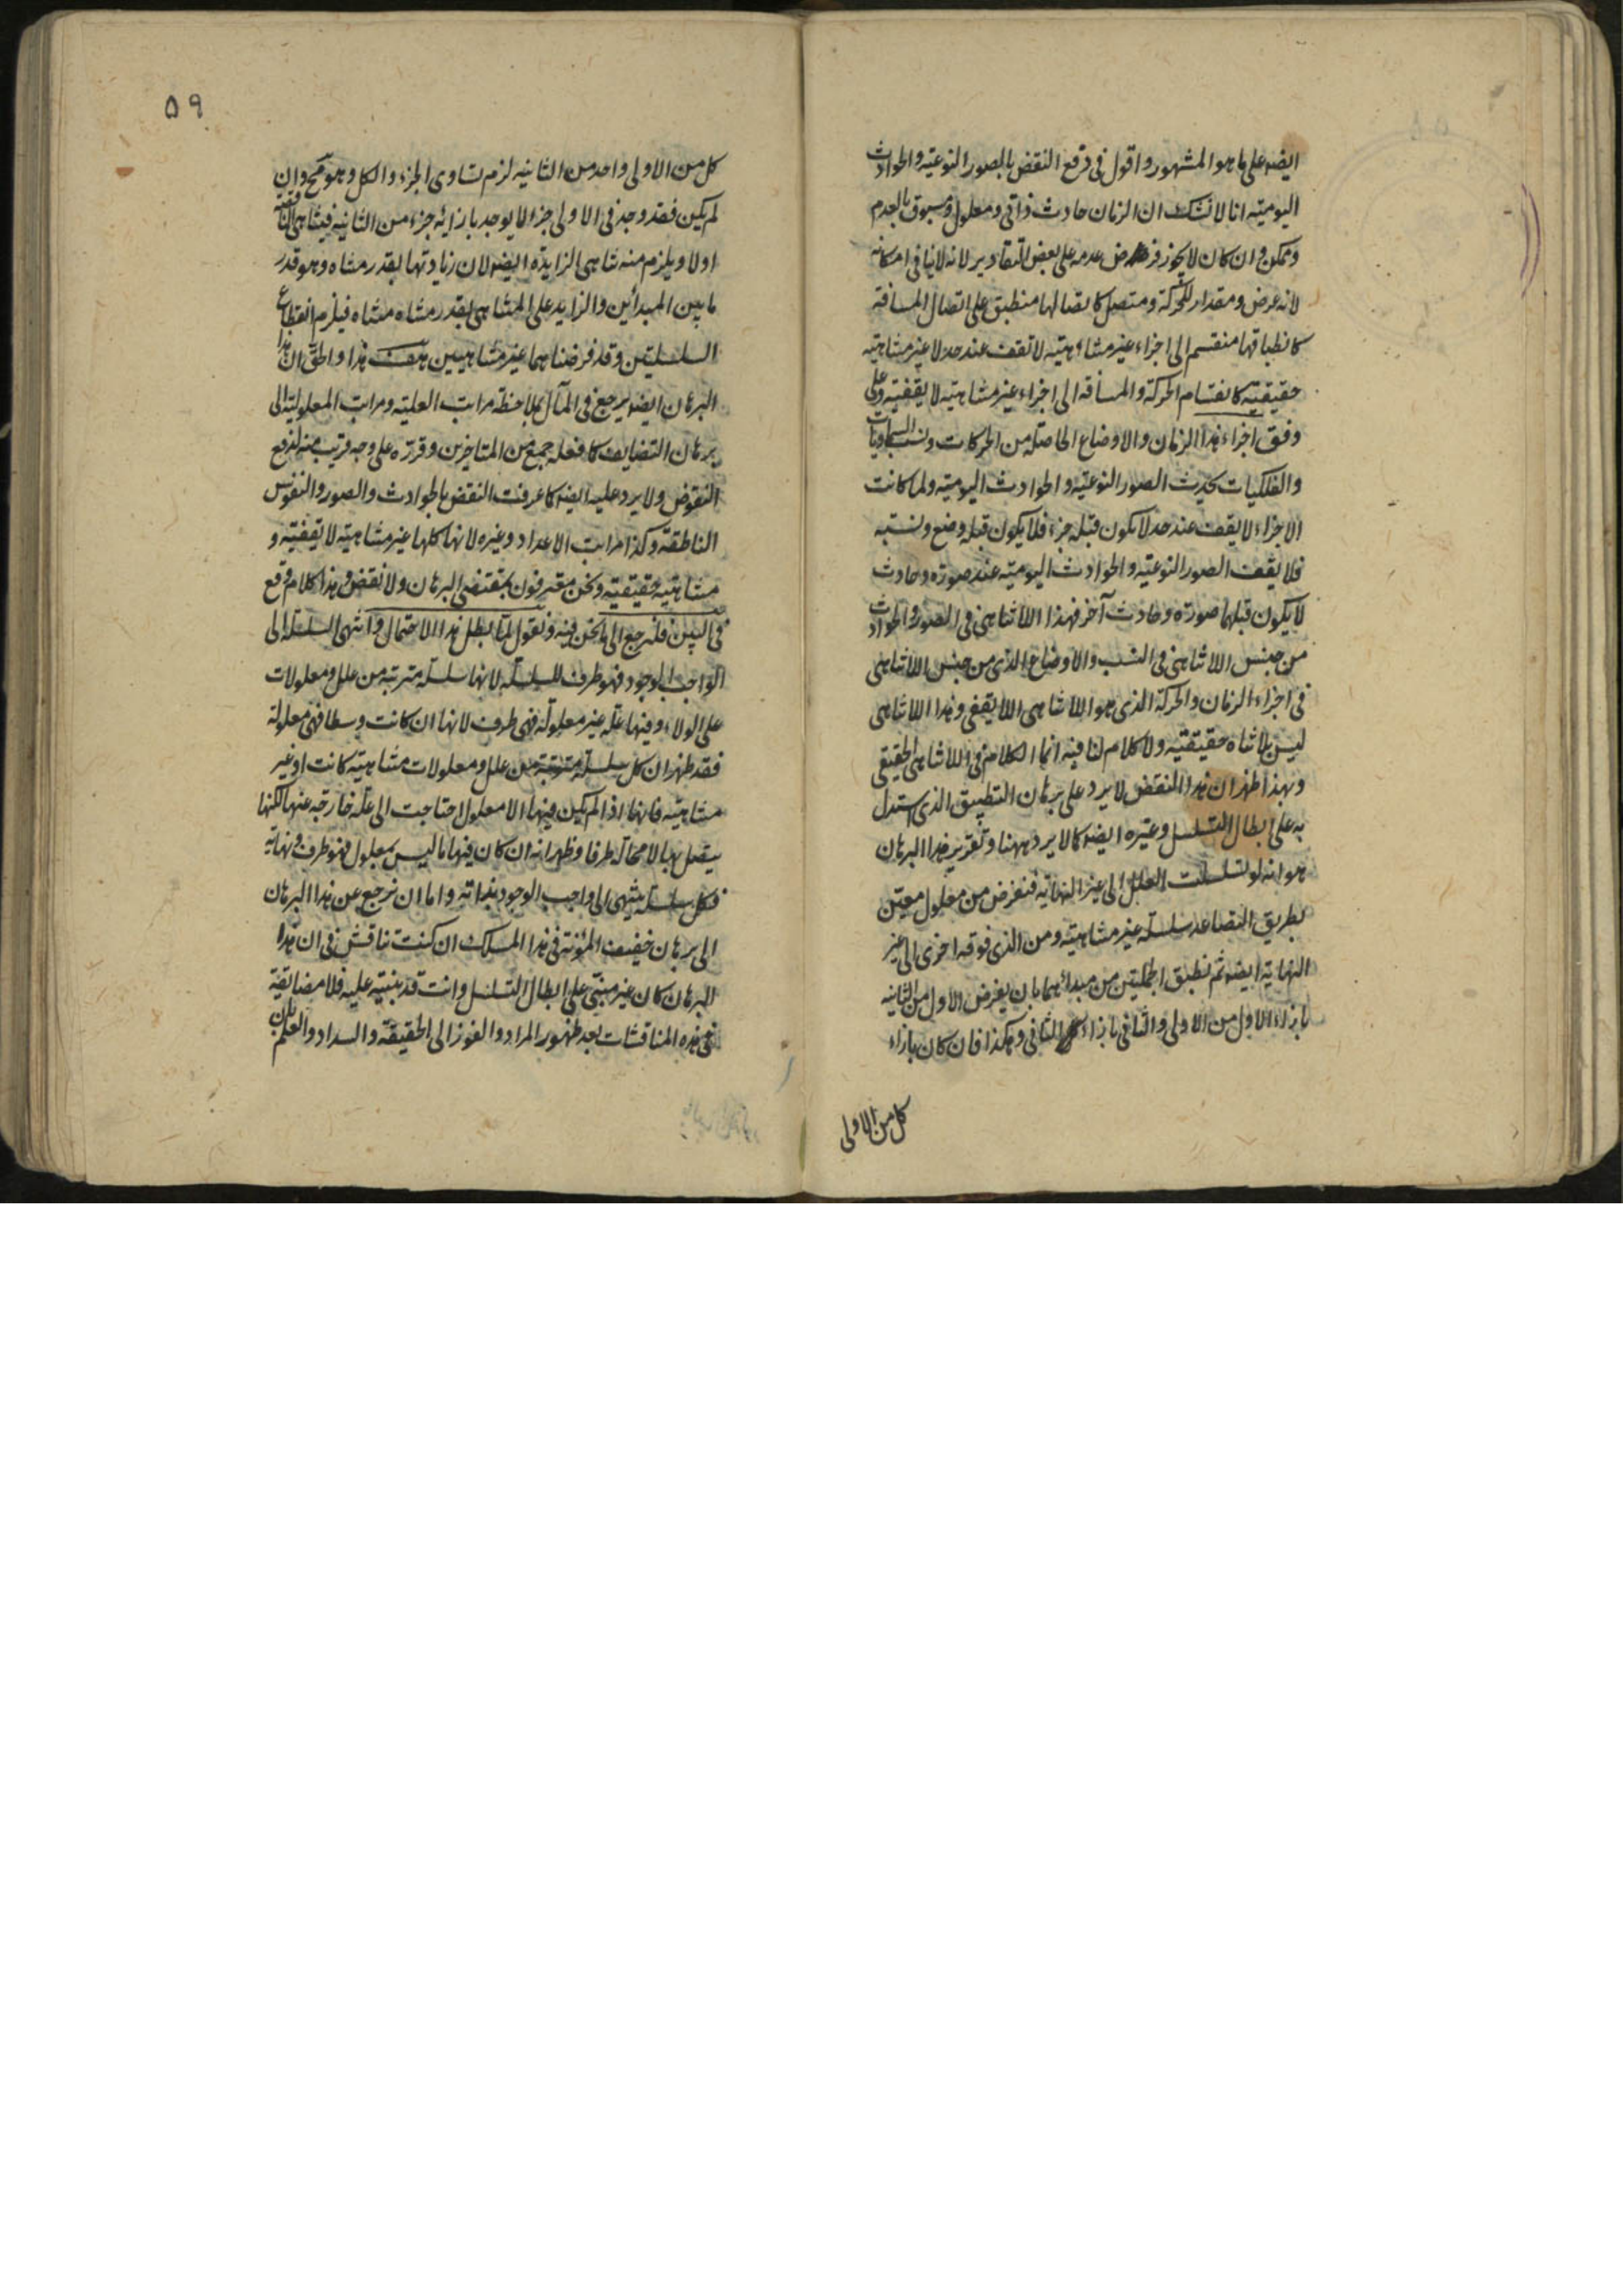 ايضه على ما هو المشهور واقول فى دفع النقض بالصور النوعية والحوادث
اليومية انا لا نشك ان الزمان حادث ذاتى ومعلول ومسبوق بالعدم
وممكن وان كان لا يجوز فرض عدمه على بعض التقادير لانه لا ينافى امكانه
لانه عرض ومقدار للحركة ومتصل كاتصالها منطبق على اتصال المسافة
كانطباقها منقسم الى اجزاء غير متناهية لا تقف عند حد لا غير متناهية
حقيقية كانقسام الحركة والمسافة الى اجزاء غير متناهية لا يقفية وعلى
وفق اجزاء هذا الزمان والاوضاع الحاصلة من الحركات ونسب السماويات
والفلكيات يحدث الصور النوعية والحوادث اليومية ولما كانت
الاجزاء لا يقف عند حد لا يكون قبله جزء فلا يكون قبله وضع ونسبة
فلا يقف الصور النوعية والحوادث اليومية عند صورة وحادث
لا يكون قبلها صورة وحادث آخر فهذا اللاتناهى فى الصور والحوادث
من جنس اللاتناهى فى النسب والاوضاع الذى من جنس اللاتناهى
فى اجزاء الزمان والحركة الذى هو اللاتناهى اللايقفى وهذا اللاتناهى
ليس بلا تناه حقيقية ولا كلام لنا فيه انما الكلام فى اللاتناهى الحقيقى
وبهذا ظهر ان هذا النقض لا يرد على برهان التطبيق الذى استدل
به على ابطال التسلسل وغيره ايضه كما لا يرد ههنا وتقرير هذا البرهان
هو انه لو تسلسلت العلل الى غير النهاية فنفرض من معلول معين
بطريق التصاعد سلسلة غير متناهية ومن الذى فوقه اخرى الى غير
النهاية ايضه ثم نطبق الجملتين من مبدائهما بان يفرض الاول من الثانية
بازاء الاول من الاولى والثانى بازاء الثانى وهكذا فان كان بازاء
كل من الاولى
۵۹
كل من الاولى واحد من الثانية لزم تساوى الجزء والكل وهو مح وان
لم يكن فقد وجد فى الاولى جزء لا يوجد بازائه جزء من الثانية فيتناهى الناقصة
اولا ويلزم منه تناهى الزايدة ايضه لان زيادتها بقدر متناه وهو قدر
ما بين المبدأين والزايد على المتناهى بقدر متناه متناه فيلزم انقطاع
السلسلتين وقد فرضناهما غير متناهيين هف هذا والحق ان هذا
البرهان ايضه يرجع فى المآل بملاحظة مراتب العلية ومراتب المعلولية الى
برهان التضايف كما فعله جمع من المتاخرين وقررته على وجه قريب منه ليدفع
النقوض ولا يرد عليه ايضه كما عرفت النقض بالحوادث والصور والنفوس
الناطقة وكذا مراتب الاعداد وغيره لانها كلها غير متناهية لا يقفية و
متناهية حقيقية ونحن معترفون بمقتضى البرهان ولا نقض وهذا كلام وقع
فى البين فلنرجع الى ما نحن فيه ونقول لما بطل هذا الاحتمال وانتهى السلسلة الى
الواجب الوجود فهو طرف للسلسلة لانها سلسلة مترتبة من علل ومعلولات
على الولاء وفيها علة غير معلولة فهى طرف لانها ان كانت وسطا فهى معلولة
فقد ظهر ان كل سلسلة مترتبة من علل ومعلولات متناهية كانت او غير
متناهية فانها اذا لم يكن فيها الا معلول احتاجت الى علة خارجة عنها لكنها
يتصل بها لا محالة طرفا وظهر انه ان كان فيها ما ليس بمعلول فهو طرف ونهاية
فكل سلسلة ينتهى الى واجب الوجود بذاته واما ان نرجع عن هذا البرهان
الى برهان خفيف المؤنة فى هذا المسلك ان كنت تناقش فى ان هذا
البرهان كان غير مبتنى على ابطال التسلسل وانت قد بنيته عليه فلا مضائقة
فى هذه المناقشات بعد ظهور المراد والفوز الى الحقيقة والسداد والعلم